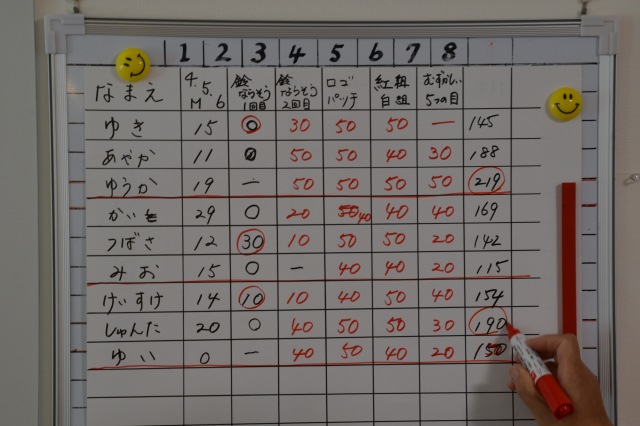 1 2 3 4 5 6 7 8
なまえ 4.5.6 M 鈴ならそう1回目 鈴ならそう2回目 ロゴパッチ 紅組白組 むずかしい5つの目
ゆき 15 0 30 50 50 — 145
あやか 11 0 50 50 40 30 188
ゆうか 19 — 50 50 50 50 219
かいと 29 0 20 40 40 40 169
つばさ 12 30 10 50 50 20 142
みお 15 0 — 40 40 20 115
けいすけ 14 10 10 40 50 40 154
しゅんた 20 0 40 50 50 30 190
ゆい 0 — 40 50 40 20 150